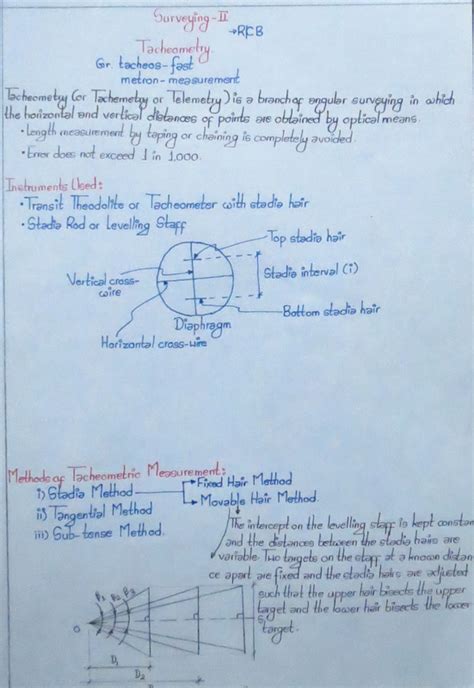 Surveying-II
→RCB
Tacheometry.
Gr. tacheos-fast
metron-measurement
Tacheometry (or Tachemetry or Telemetry) is a branch of angular surveying in which
the horizontal and vertical distances of points are obtained by optical means.
• Length measurement by taping or chaining is completely avoided.
• Error does not exceed 1 in 1,000.
Instruments Used:
• Transit Theodolite or Tacheometer with stadia hair
• Stadia Rod or Levelling Staff
Top stadia hair
Stadia interval (i)
Vertical cross-
wire
Bottom stadia hair
Diaphragm
Horizontal cross-wire
Methods of Tacheometric Measurement:
i) Stadia Method → Fixed Hair Method
→ Movable Hair Method
ii) Tangential Method
iii) Sub-tense Method.
The intercept on the levelling staff is kept constant
and the distances between the stadia hairs are
variable. Two targets on the staff at a known distan
ce apart are fixed and the stadia hairs are adjusted
such that the upper hair bisects the upper
target and the lower hair bisects the lower
target.
β1 β2 β3
O
D1
D2